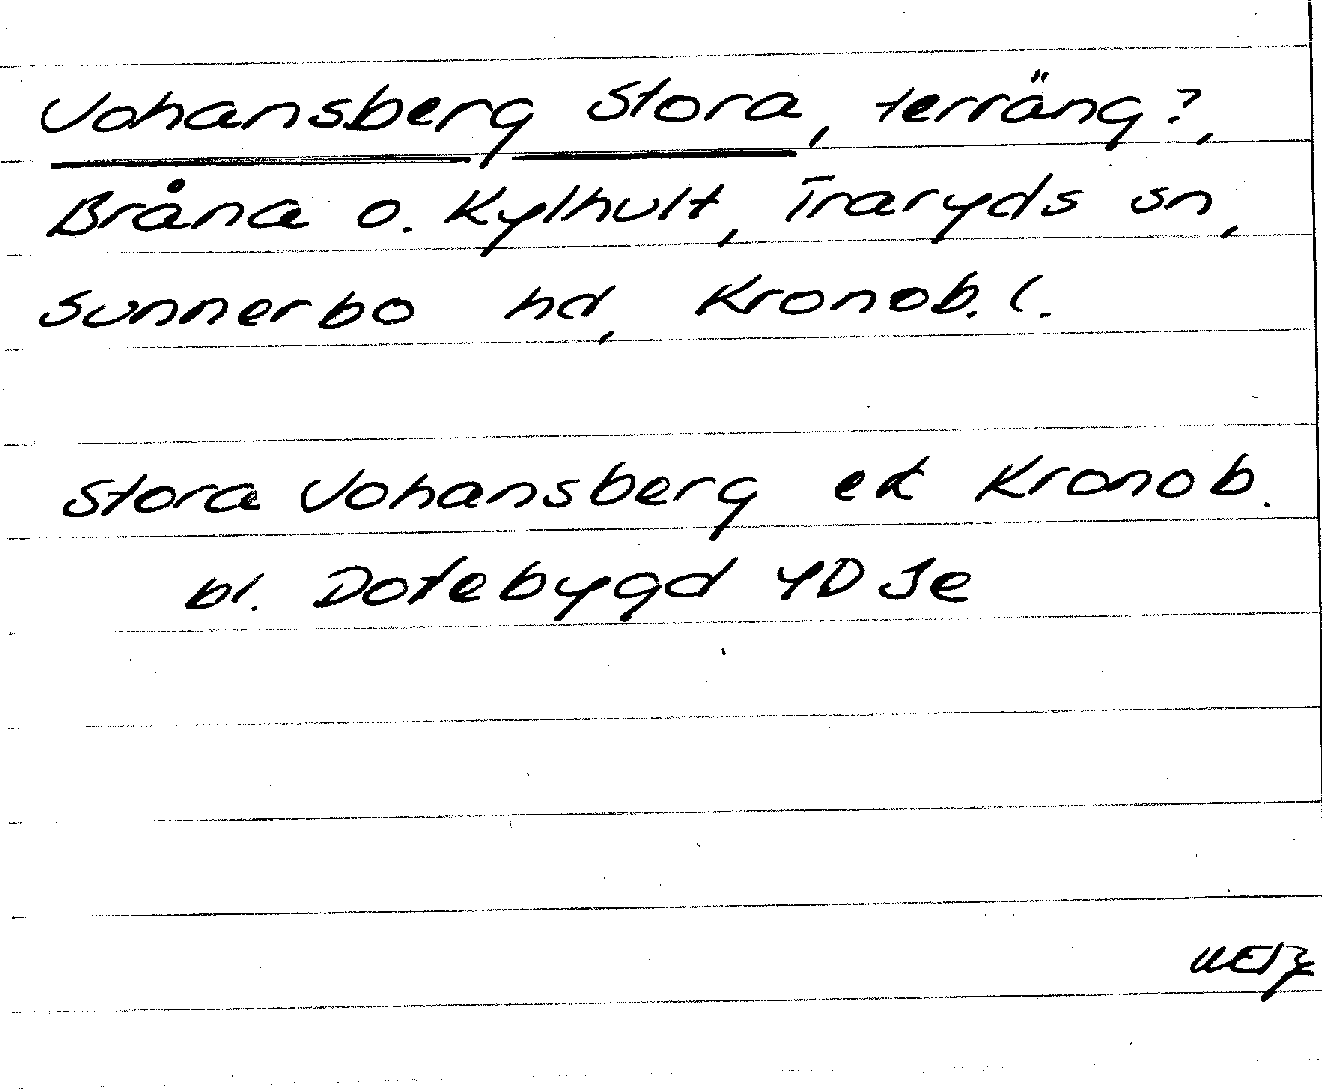 Johansberg Stora, terräng?,
Bråna o. Kylhult, Traryds sn,
Sunnerbo hd, Kronob. l.
Stora Johansberg ek Kronob.
bl. Dotebygd 4D Se